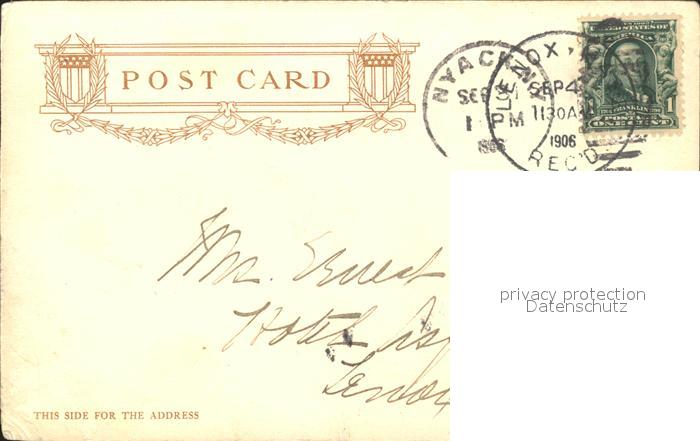 POST CARD
NYACK N.Y.
SEP
1 PM
1906
LENOX,
SEP 4
1130A
1906
REC'D
UNITED STATES OF
AMERICA
FRANKLIN
1 1
POSTAGE
ONE CENT
Mrs. Ernest
Hotel
Lenox
privacy protection
Datenschutz
THIS SIDE FOR THE ADDRESS